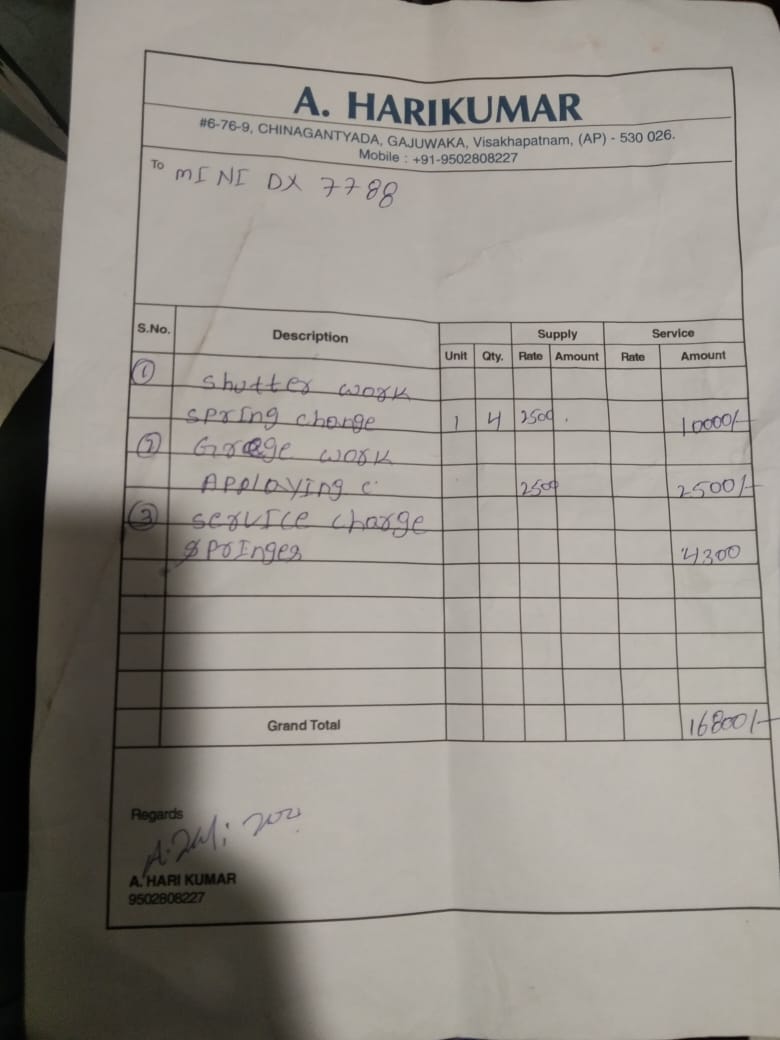 A. HARIKUMAR
#6-76-9, CHINAGANTYADA, GAJUWAKA, Visakhapatnam, (AP) - 530 026.
Mobile : +91-9502808227
To MINI DX 7788
S.No. Description Supply Service
Unit Qty. Rate Amount Rate Amount
① Shutter work
spring change 1 4 2500 10000/-
② Greege work
Applaying c 2500 2500/-
③ service charge
springes 4300
Grand Total 16800/-
Regards
A. HARI KUMAR
9502808227